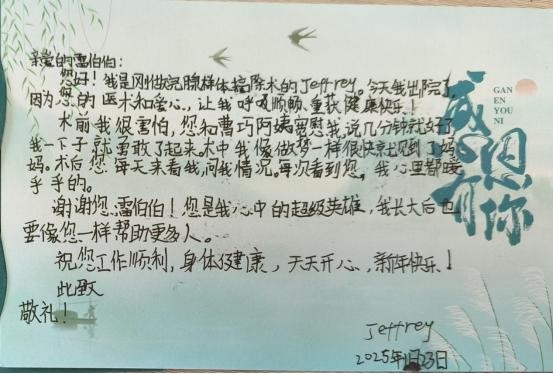 亲爱的雷伯伯:
您好!我是刚做完腺样体摘除术的Jeffrey。今天我出院了,
因为您的医术和爱心,让我呼吸顺畅,重获健康快乐!
术前我很害怕,您和曹巧阿姨安慰我说几分钟就好了,
我一下子就勇敢了起来。术中我像做梦一样很快就见到了妈
妈。术后您每天来看我,问我情况。每次看到您,我心里都暖
乎乎的。
谢谢您,雷伯伯!您是我心中的超级英雄,我长大后也
要像您一样帮助更多人。
祝您工作顺利,身体健康,天天开心,新年快乐!
此致
敬礼!
Jeffrey
2025年1月23日
感恩有你
GAN
EN YOU
NI